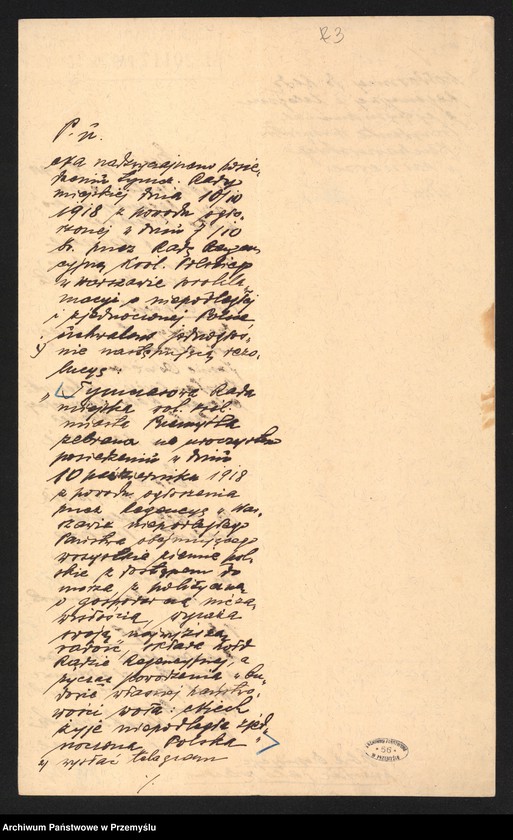 73
P. ń.
Na nadzwyczajnem posie-
dzeniu Tymcz. Rady
miejskiej dnia 10/10
1918 z powodu ogło-
szonej w dniu 7/10
br. przez Radę Regen-
cyjną Król. Polskiego
w Warszawie prokla-
macyi o niepodległej
i zjednoczonej Polsce
uchwalono jednogłoś-
1) nie następującą rezo-
lucyę:
„Tymczasowa Rada
miejska król. stoł.
miasta Przemyśla
zebrana na uroczystem
posiedzeniu w dniu
10 października 1918
z powodu ogłoszenia
przez Regencyę w War-
szawie niepodległego
Państwa obejmującego
wszystkie ziemie pol-
skie z dostępem do
morza z polityczną
i gospodarczą nieza-
wisłością, wyraża
swoją najwyższą
radość, składa hołd
Radzie Regencyjnej, a
życząc powodzenia w bu-
dowie własnej państwo-
wości woła: Niech
żyje niepodległa zjed-
noczona Polska"
2) wysłać telegram
./.
ARCHIWUM PAŃSTWOWE
56
W PRZEMYŚLU
Archiwum Państwowe w Przemyślu